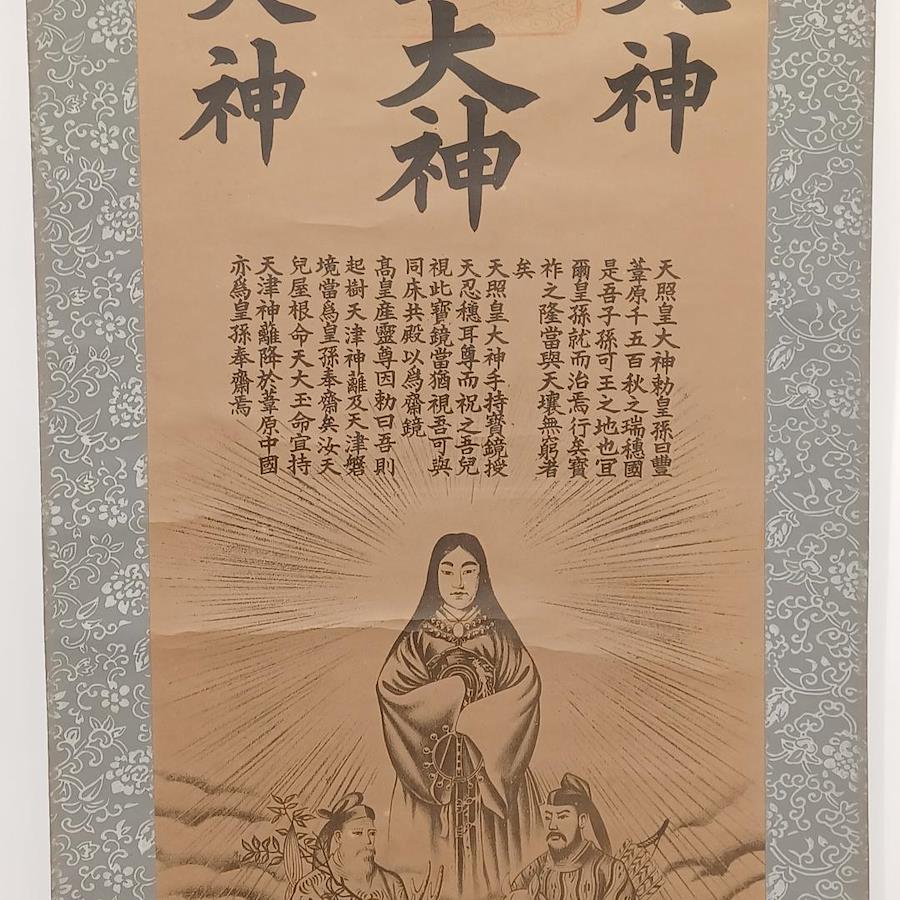 大神
大神
大神
天照皇大神勅皇孫曰豐
葦原千五百秋之瑞穗國
是吾子孫可王之地也宜
爾皇孫就而治焉行矣寶
祚之隆當與天壤無窮者
矣
天照皇大神手持寶鏡授
天忍穗耳尊而祝之吾兒
視此寶鏡當猶視吾可與
同床共殿以爲齋鏡
高皇産靈尊因勅曰吾則
起樹天津神籬及天津磐
境當爲皇孫奉齋矣汝天
兒屋根命天大玉命宜持
天津神蘺降於葦原中國
亦爲皇孫奉齋焉